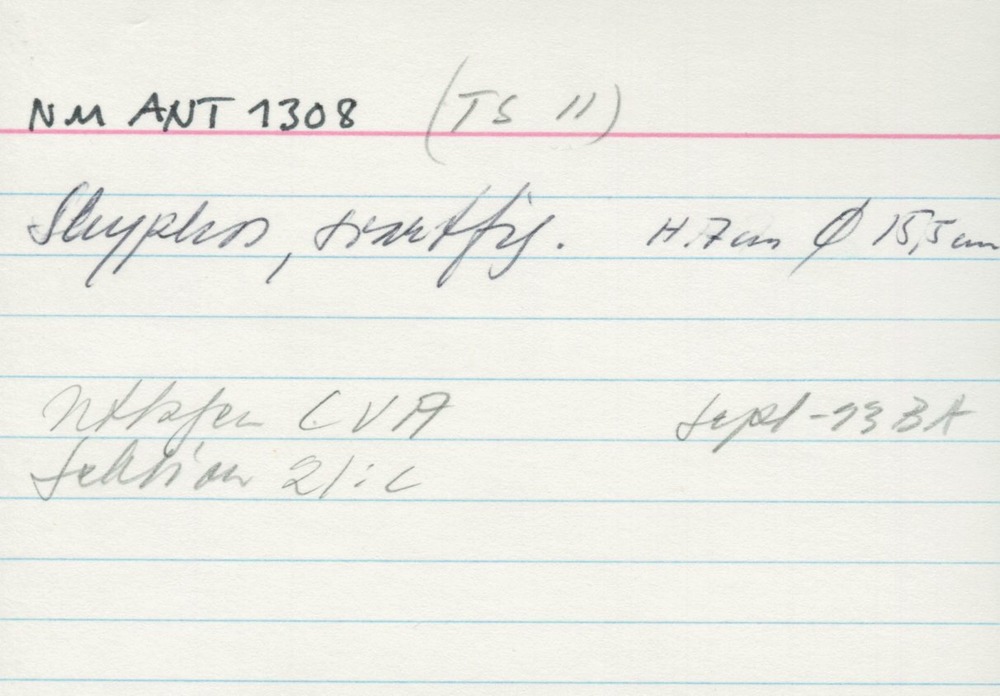 NM ANT 1308 (TS 11)
Skyphos, svartfig. H. 7 cm Ø 15,5 cm
CVA Sept -93 BA
Sektion 21:c